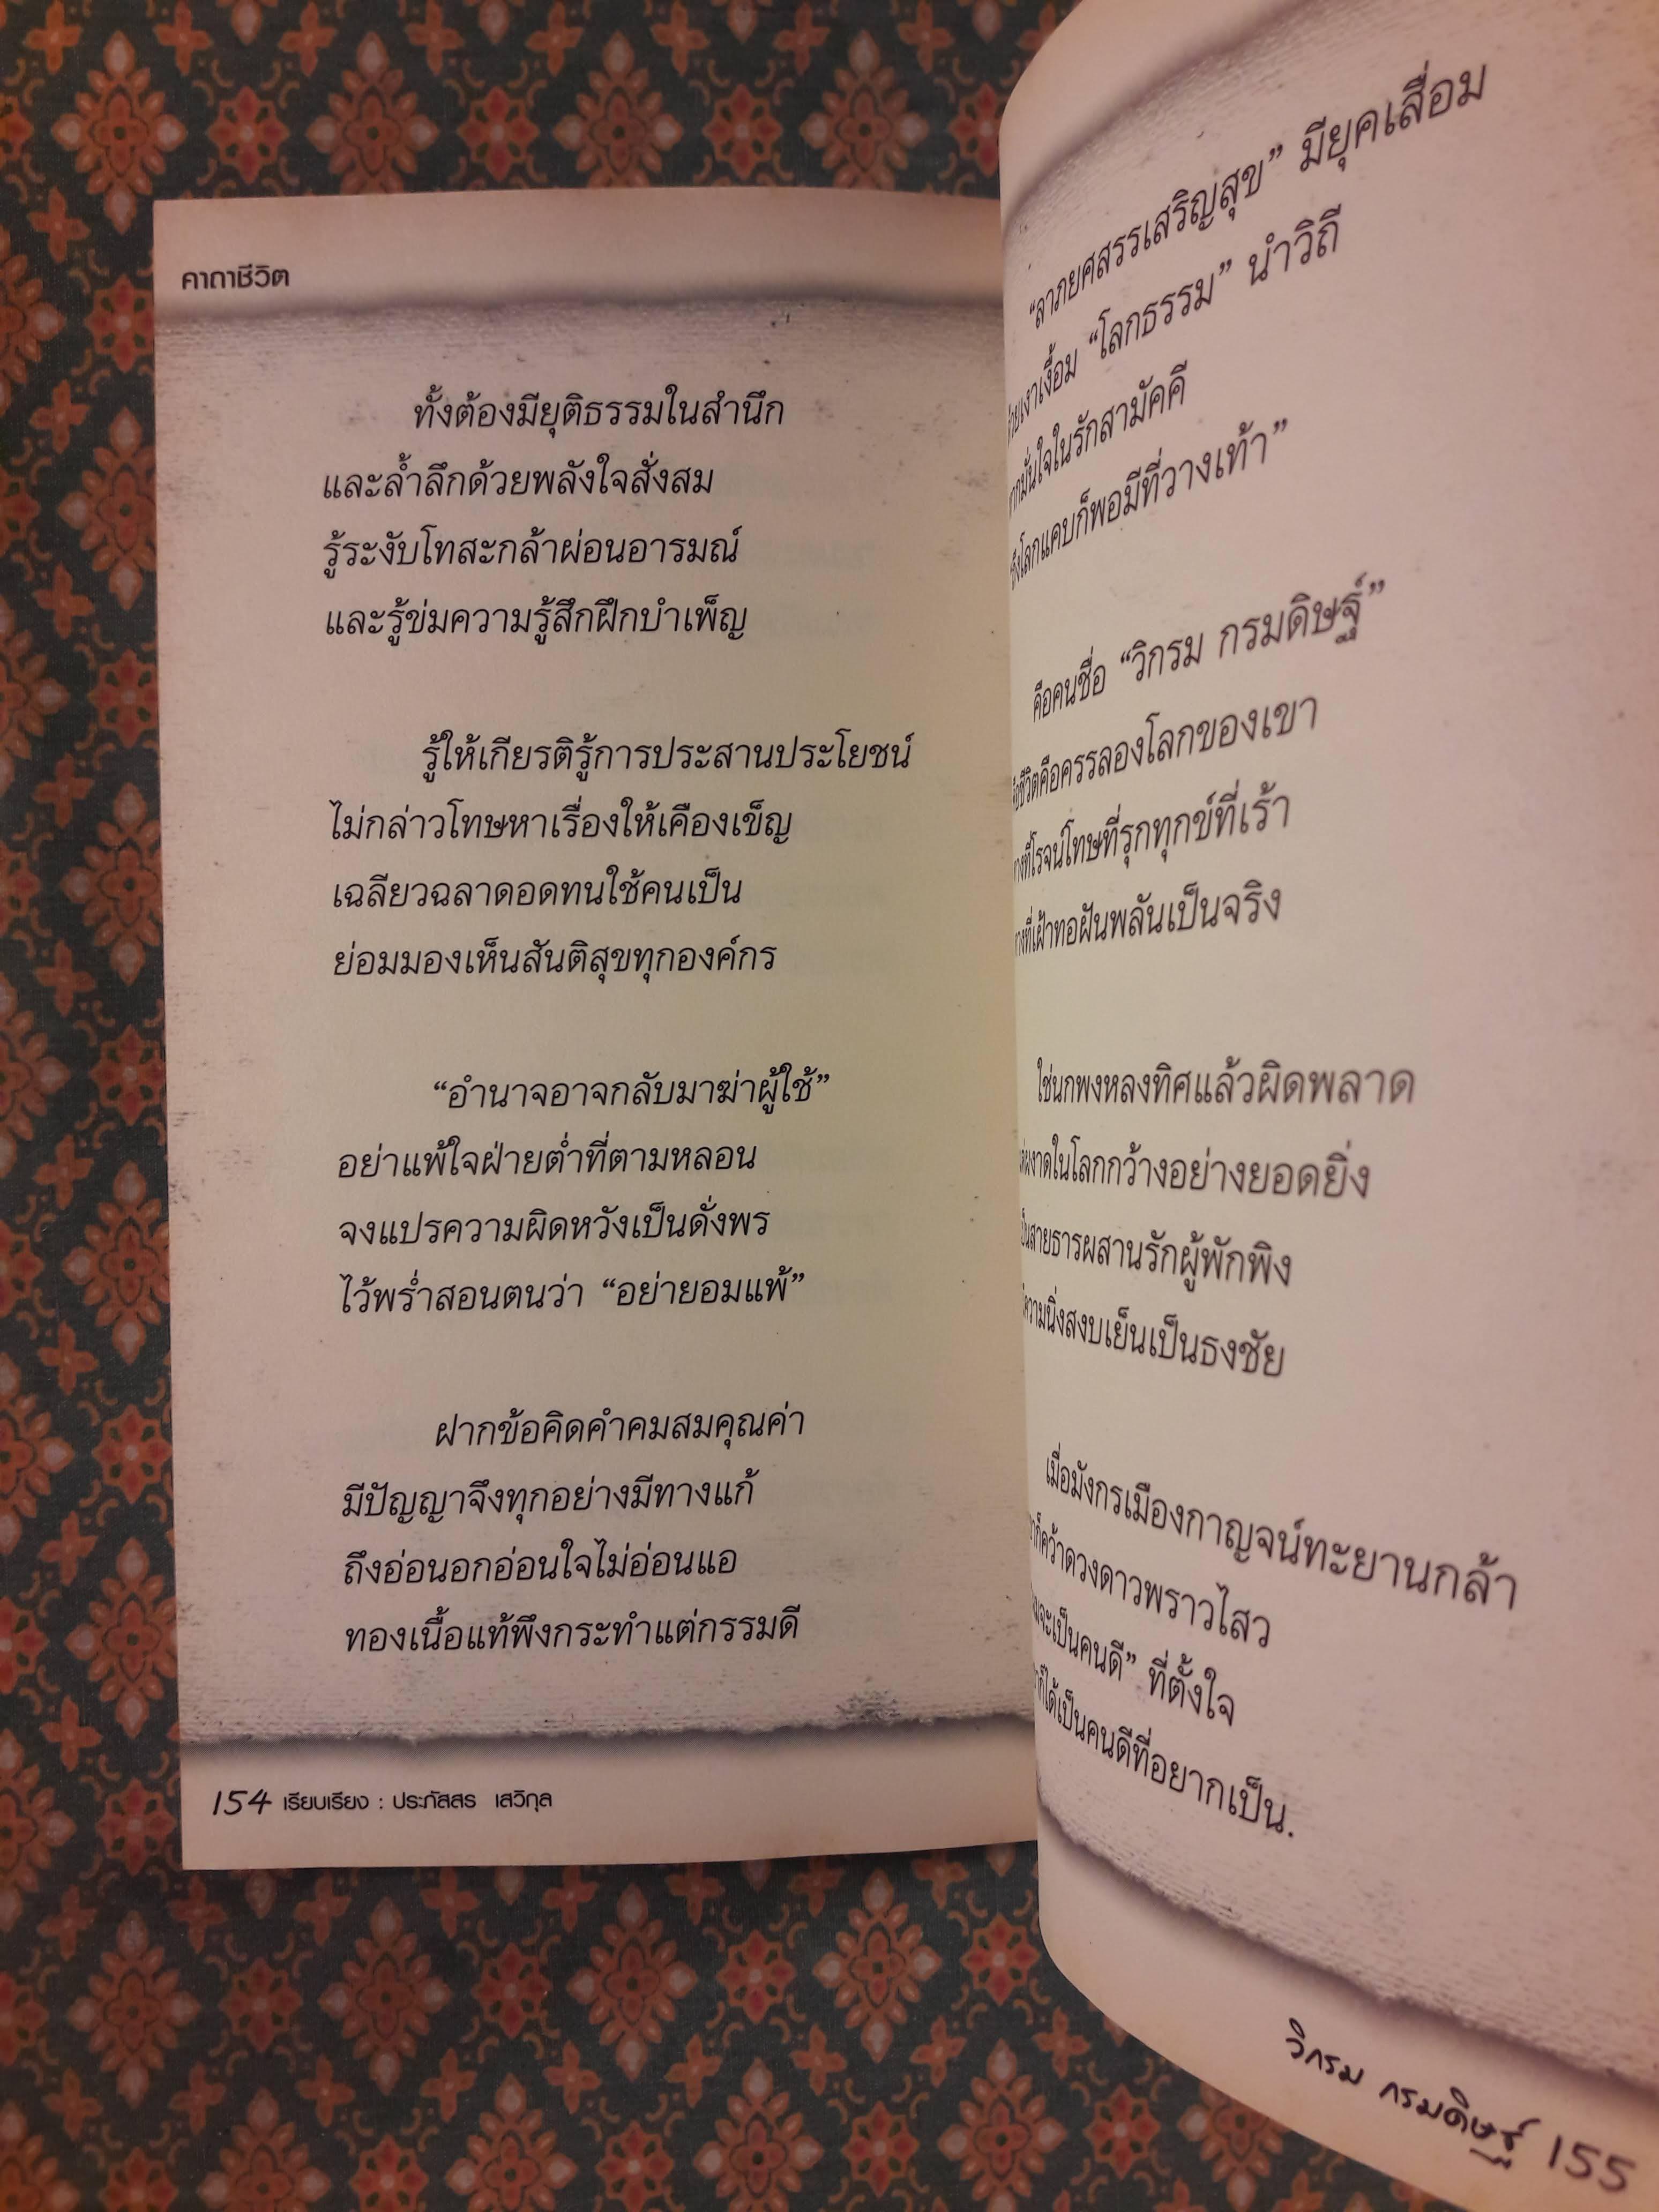 คาถาชีวิต
ทั้งต้องมียุติธรรมในสำนึก
และล้ำลึกด้วยพลังใจสั่งสม
รู้ระงับโทสะกล้าผ่อนอารมณ์
และรู้ข่มความรู้สึกฝึกบำเพ็ญ
รู้ให้เกียรติรู้การประสานประโยชน์
ไม่กล่าวโทษหาเรื่องให้เคืองเข็ญ
เฉลียวฉลาดอดทนใช้คนเป็น
ย่อมมองเห็นสันติสุขทุกองค์กร
“อำนาจอาจกลับมาฆ่าผู้ใช้”
อย่าแพ้ใจฝ่ายต่ำที่ตามหลอน
จงแปรความผิดหวังเป็นดั่งพร
ไว้พร่ำสอนตนว่า “อย่ายอมแพ้”
ฝากข้อคิดคำคมสมคุณค่า
มีปัญญาจึงทุกอย่างมีทางแก้
ถึงอ่อนอกอ่อนใจไม่อ่อนแอ
ทองเนื้อแท้พึงกระทำแต่กรรมดี
154 เรียบเรียง : ประภัสสร เสวิกุล
“ลาภยศสรรเสริญสุข” มียุคเสื่อม
เงาเงื้อม “โลกธรรม” นำวิถี
มั่นใจในรักสามัคคี
โลกแคบก็พอมีที่วางเท้า”
คือคนชื่อ “วิกรม กรมดิษฐ์”
ชีวิตคือครรลองโลกของเขา
ที่โรจน์โทษที่รุกทุกข์ที่เร้า
ที่เฝ้าทอฝันพลันเป็นจริง
ใช่นกพงหลงทิศแล้วผิดพลาด
ผงาดในโลกกว้างอย่างยอดยิ่ง
เป็นสายธารผสานรักผู้พักพิง
ความนิ่งสงบเย็นเป็นธงชัย
เมื่อมังกรเมืองกาญจน์ทะยานกล้า
ก็คว้าดวงดาวพราวไสว
จะเป็นคนดี” ที่ตั้งใจ
ก็ได้เป็นคนดีที่อยากเป็น.
วิกรม กรมดิษฐ์ 155